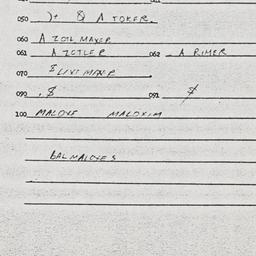 050 )+ & A TOKER.
060 A ZOIL MAKER
061 A ZOTLER 062 A RIMER
070 $ LIVE MAKER.
090 . $ 091 $
100 MALOVE MALOXIM
BALMALOVES